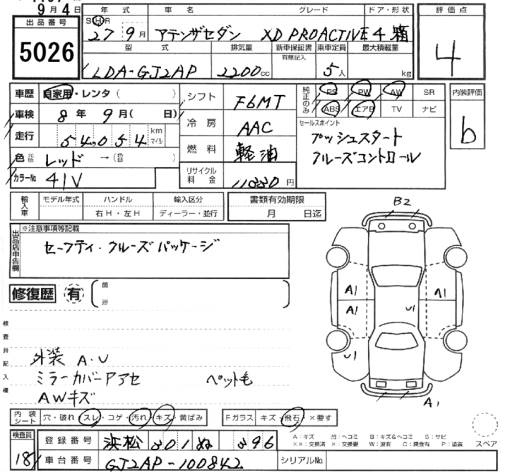 9月4日
出品番号
5026
年式 車名 グレード ドア・形状
S H R
27年 9月 アテンザセダン XD PROACTIVE 4 箱
型式 排気量 新車保証書 乗車定員 最大積載量
有無記入
LDA-GJ2AP 2200cc 5人 kg
評価点
4
車歴 自家用・レンタ( )
車検 8年 9月( 日)
走行 54054 km マイル
色 元色 レッド →(色替 )
カラーNo 41V
シフト F6MT
冷房 AAC
燃料 軽油
リサイクル料金 円
純正のみ
PS PW AW SR
ABS エアB TV ナビ
セールスポイント
プッシュスタート
クルーズコントロール
内装評価
b
輸入車 モデル年式 ハンドル 輸入区分
右H・左H ディーラー・並行
書類有効期限
月 日迄
出品店申告欄
※注意事項等記載
セーフティ・クルーズパッケージ
修復歴 有
検査員記入欄
外装 A・U
ミラーカバーアセ ペット毛
AWキズ
B2
A1 A1
A1 U1
A1
スペア
内装シート 穴・破れ スレ・コゲ・汚れ・キズ・黄ばみ
Fガラス キズ・飛石・×要す
検査員
18
登録番号 浜松 301 ぬ 396
車台番号 GJ2AP-100842
シリアルNo